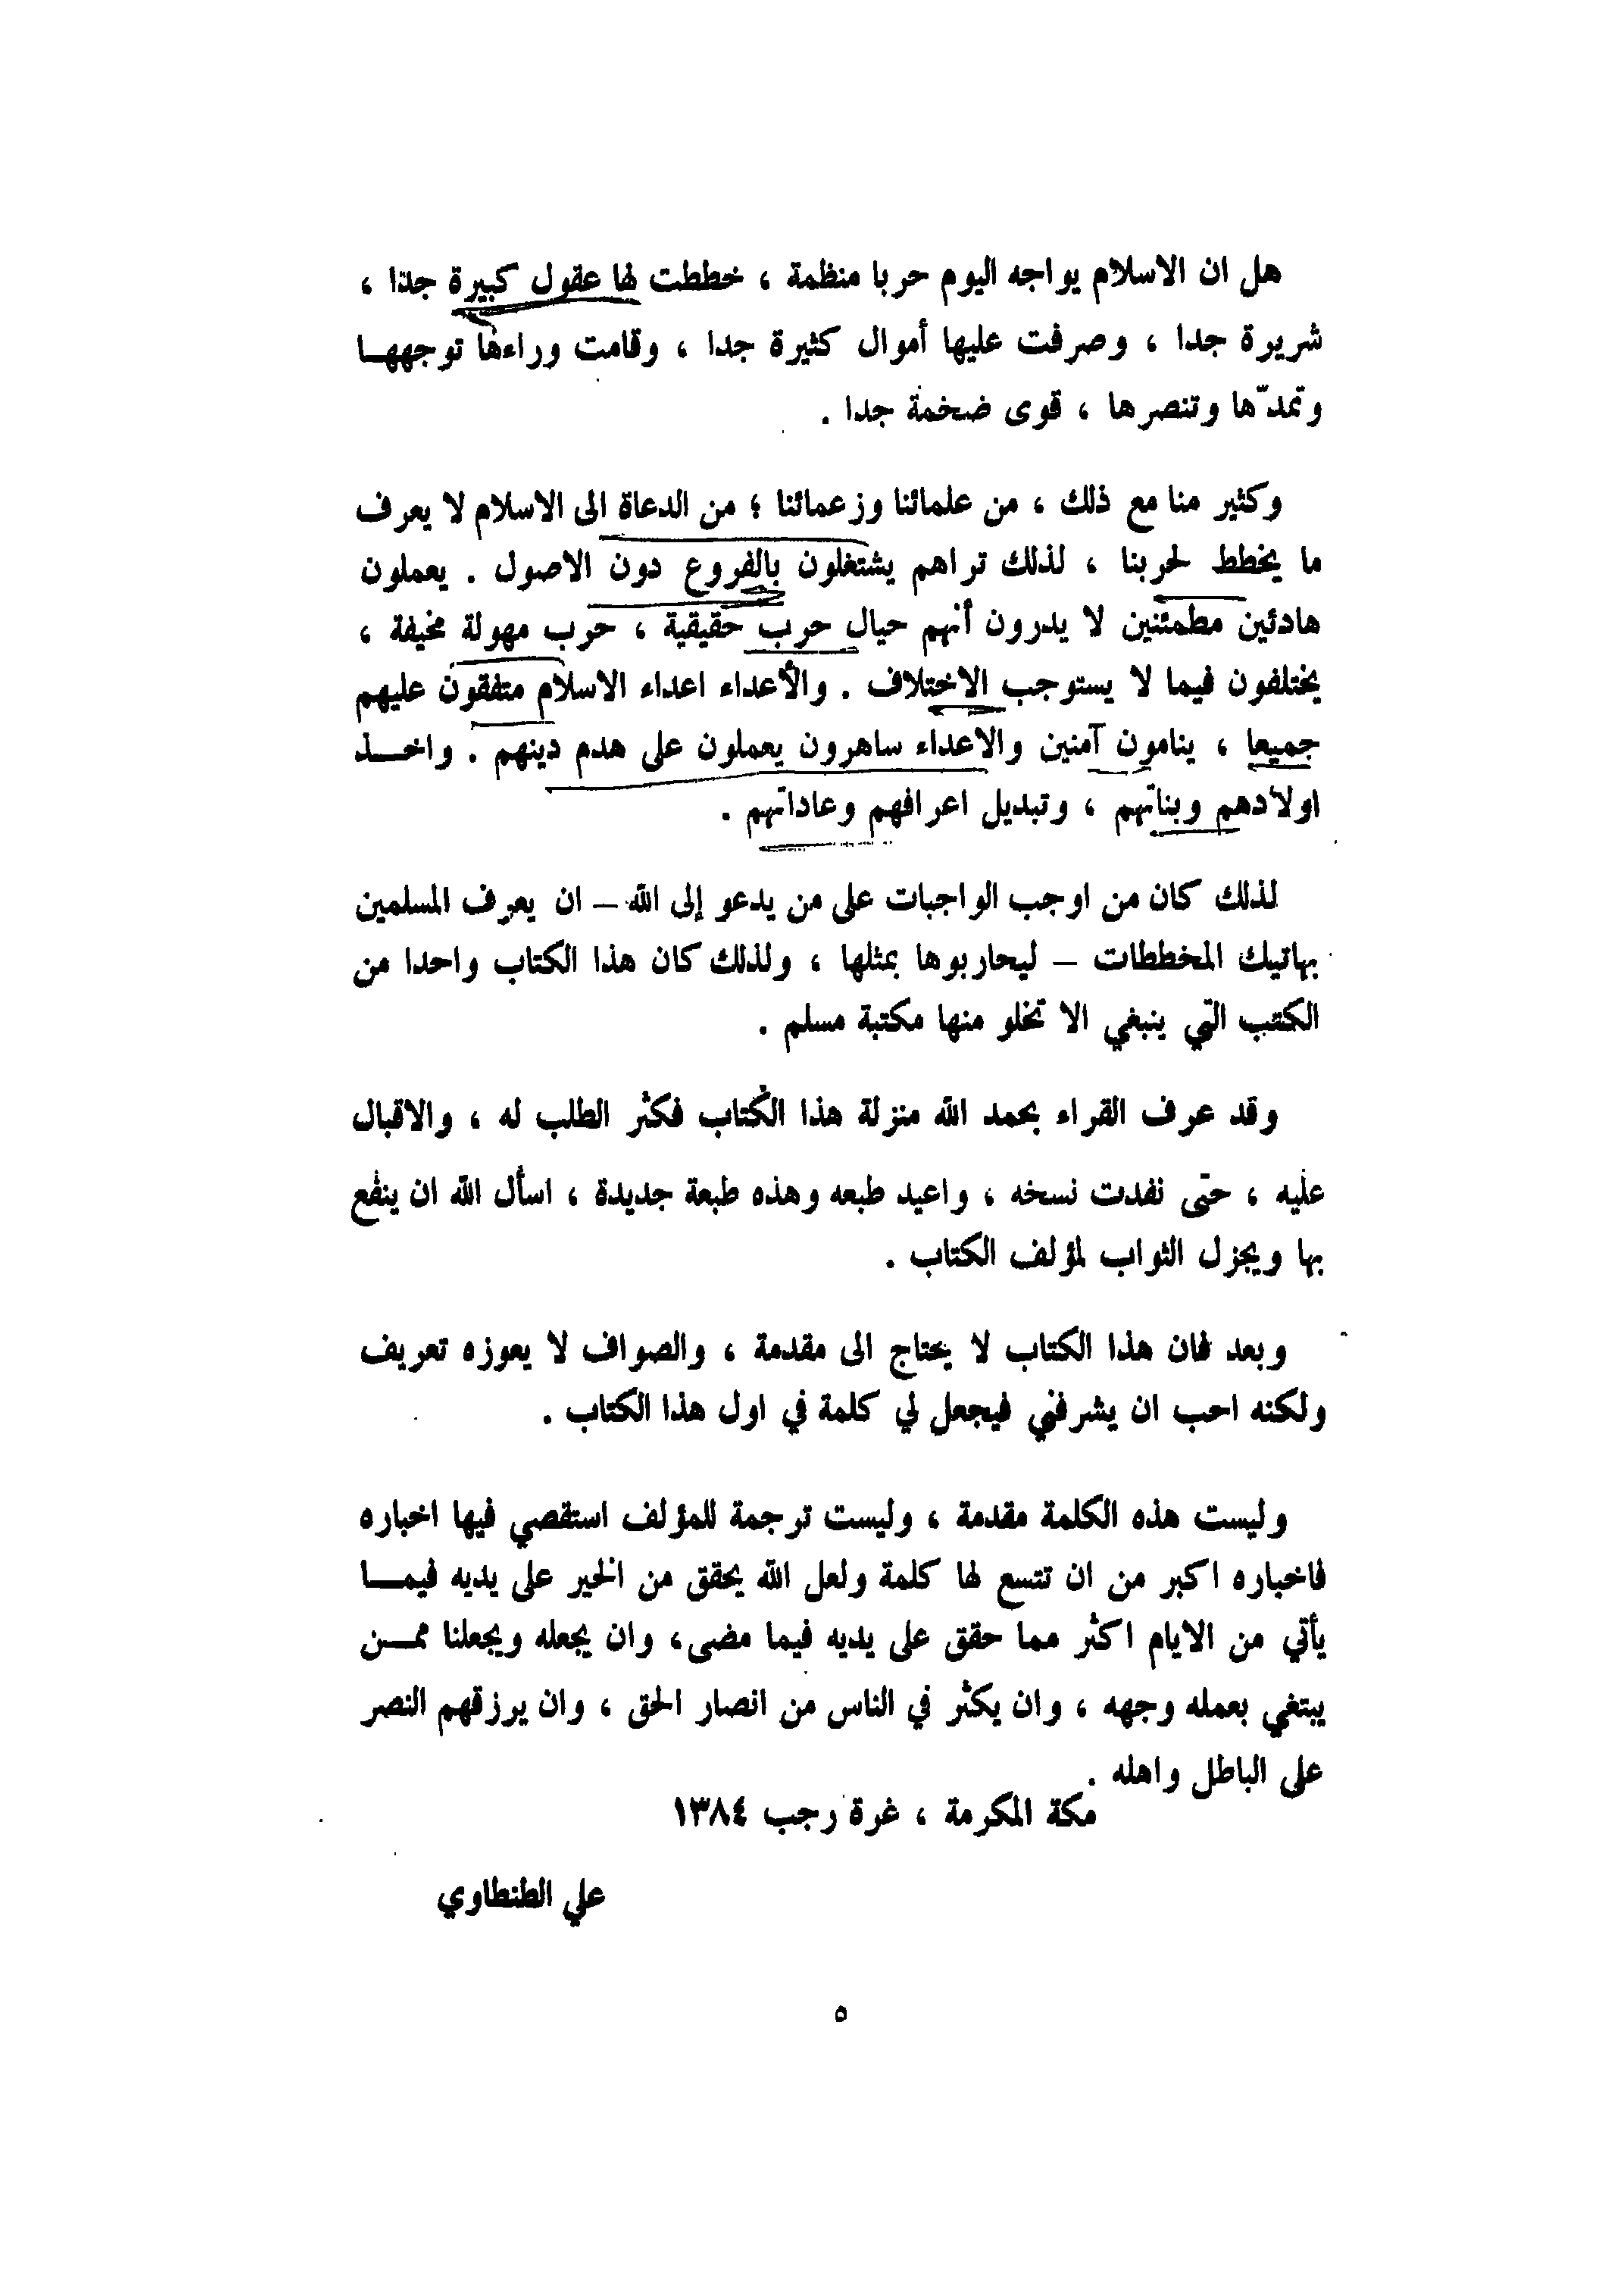 هل ان الاسلام يواجه اليوم حربا منظمة ، خططت لها عقول كبيرة جدا ،
شريرة جدا ، وصرفت عليها أموال كثيرة جدا ، وقامت وراءها توجههــا
وتمدّها وتنصرها ، قوى ضخمة جدا .
وكثير منا مع ذلك ، من علمائنا وزعمائنا ؛ من الدعاة الى الاسلام لا يعرف
ما يخطط لحربنا ، لذلك تراهم يشتغلون بالفروع دون الاصول . يعملون
هادئين مطمئنين لا يدرون أنهم حيال حرب حقيقية ، حرب مهولة مخيفة ،
يختلفون فيما لا يستوجب الاختلاف . والأعداء اعداء الاسلام متفقون عليهم
جميعا ، ينامون آمنين والاعداء ساهرون يعملون على هدم دينهم . واخــذ
اولادهم وبناتهم ، وتبديل اعرافهم وعاداتهم .
لذلك كان من اوجب الواجبات على من يدعو إلى الله – ان يعرف المسلمين
بهاتيك المخططات – ليحاربوها بمثلها ، ولذلك كان هذا الكتاب واحدا من
الكتب التي ينبغي الا تخلو منها مكتبة مسلم .
وقد عرف القراء بحمد الله منزلة هذا الكتاب فكثر الطلب له ، والاقبال
عليه ، حتى نفدت نسخه ، واعيد طبعه وهذه طبعة جديدة ، اسأل الله ان ينفع
بها ويجزل الثواب لمؤلف الكتاب .
وبعد فان هذا الكتاب لا يحتاج الى مقدمة ، والصواف لا يعوزه تعريف
ولكنه احب ان يشرفني فيجعل لي كلمة في اول هذا الكتاب .
وليست هذه الكلمة مقدمة ، وليست ترجمة للمؤلف استقصي فيها اخباره
فاخباره اكبر من ان تتسع لها كلمة ولعل الله يحقق من الخير على يديه فيمــا
يأتي من الايام اكثر مما حقق على يديه فيما مضى، وان يجعله ويجعلنا ممــن
يبتغي بعمله وجهه ، وان يكثر في الناس من انصار الحق ، وان يرزقهم النصر
على الباطل واهله .
مكة المكرمة ، غرة رجب ١٣٨٤
علي الطنطاوي
٥